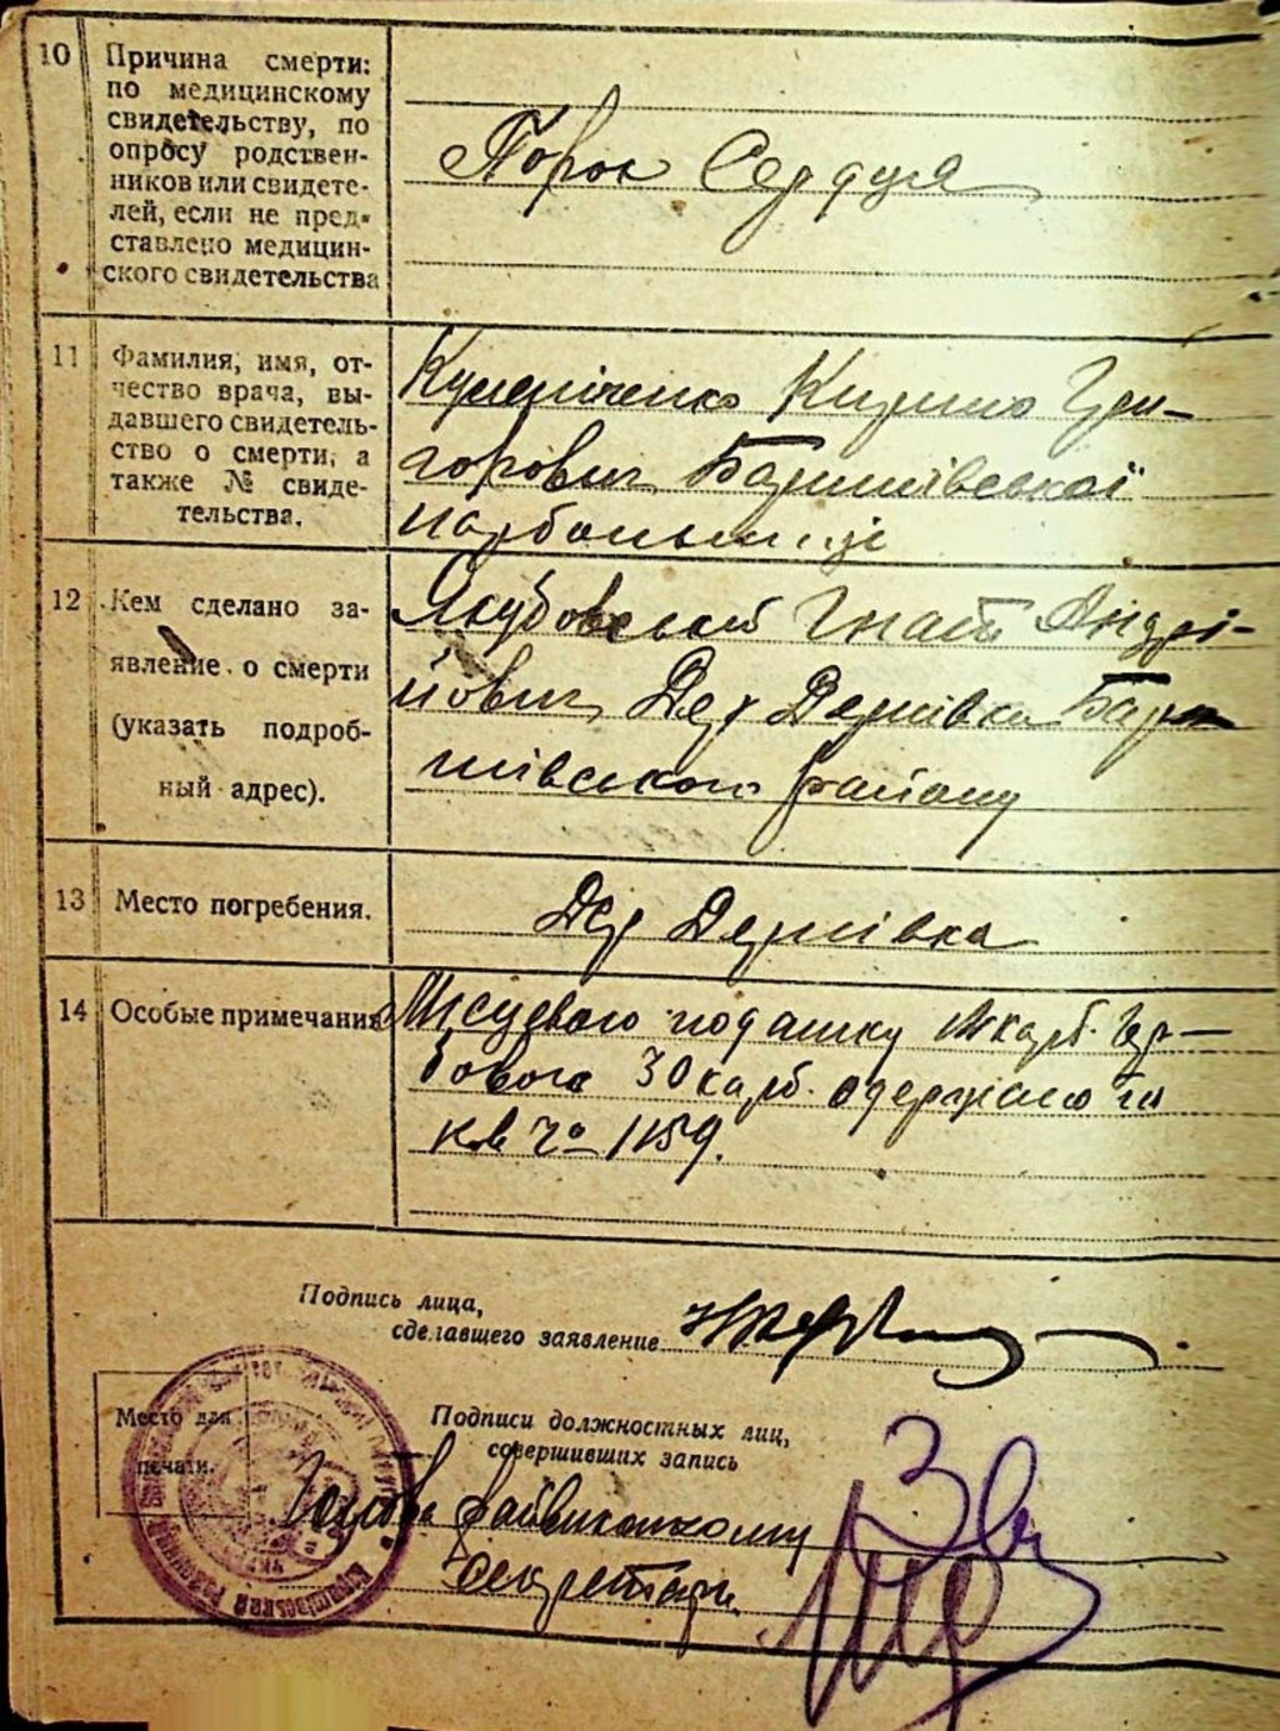 10
Причина смерти:
по медицинскому
свидетельству, по
опросу родствен-
ников или свидете-
лей, если не пред-
ставлено медицин-
ского свидетельства
Порок Сердця
11
Фамилия, имя, от-
чество врача, вы-
давшего свидетель-
ство о смерти, а
также № свиде-
тельства.
Кирило Гри-
горович Баришівської
12
Кем сделано за-
явление о смерти
(указать подроб-
ный адрес).
Якубовський Гнат Андрі-
йович Дер Дернівка Бари
шівського району
13
Место погребения.
Дер Дернівка
14
Особые примечания
Місцевого податку карб. Гер-
бового 30 карб. одержано
кв Чо 1159.
Подпись лица,
сделавшего заявление
Место для
печати.
Подписи должностных лиц,
совершивших запись
Голова Райвиконкому
Секретарь